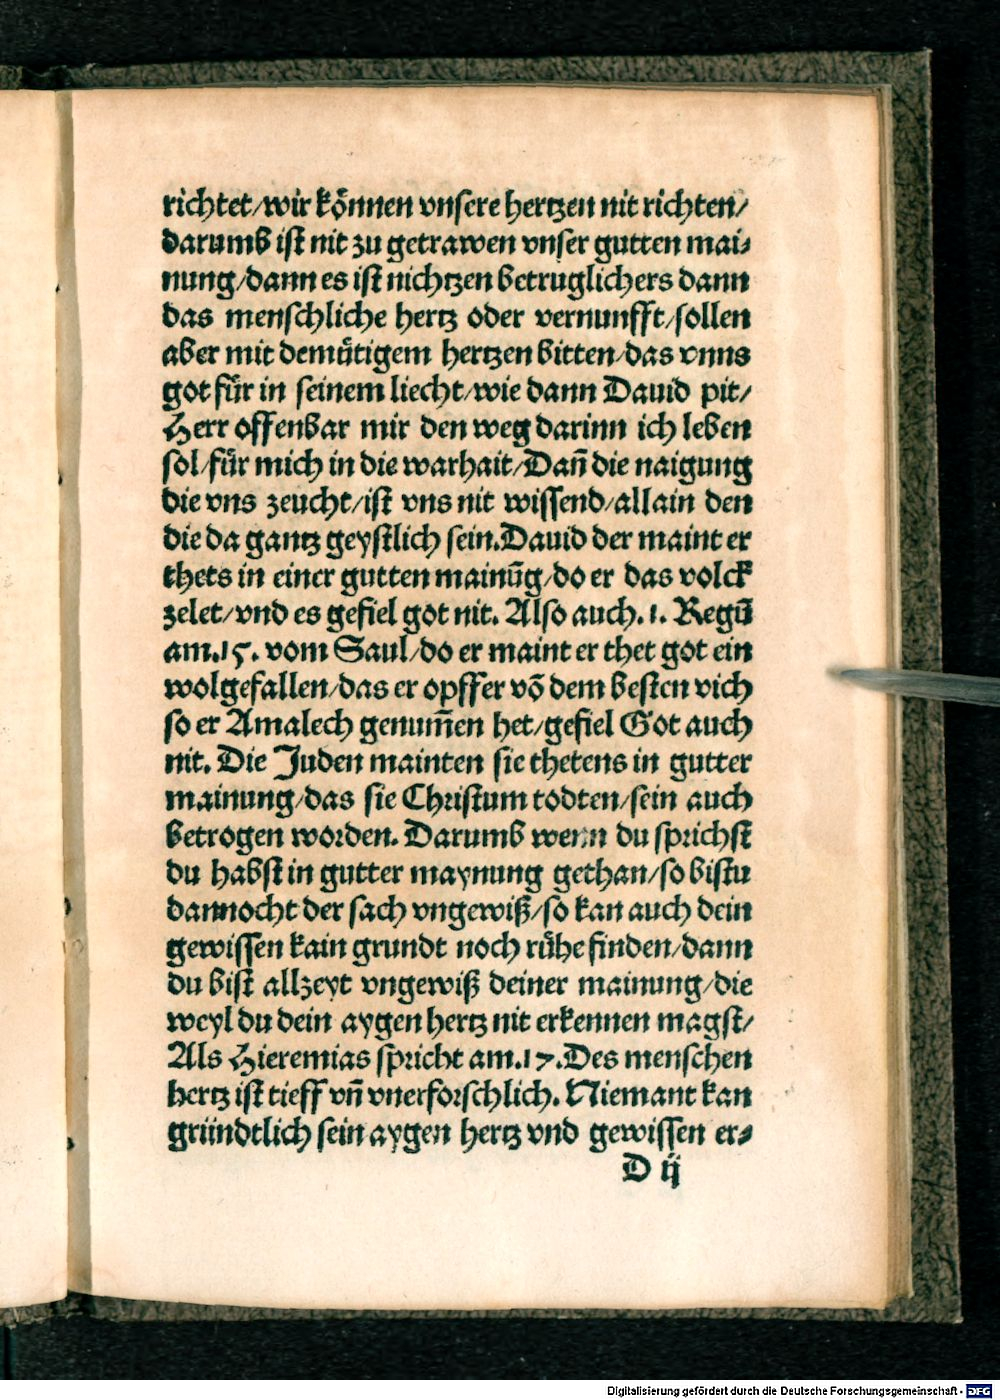 richtet/wir koͤnnen vnsere hertzen nit richten/
darumb ist nit zu getrawen vnser gutten mai⸗
nung/dann es ist nichtzen betruglichers dann
das menschliche hertz oder vernunfft/sollen
aber mit demuͤtigem hertzen bitten/das vnns
got fuͤr in seinem liecht/wie dann Dauid pit/
Herr offenbar mir den weg darinn ich leben
sol/fuͤr mich in die warhait/Dañ die naigung
die vns zeucht/ist vns nit wissend/allain den
die da gantz geystlich sein.Dauid der maint er
thets in einer gutten mainūg/do er das volck
zelet/vnd es gefiel got nit. Also auch.1. Regū
am.15. vom Saul/do er maint er thet got ein
wolgefallen/das er opffer võ dem besten vich
so er Amalech genum̃en het/gefiel Got auch
nit. Die Juden mainten sie thetens in gutter
mainung/das sie Christum todten/sein auch
betrogen worden. Darumb wenn du sprichst
du habst in gutter maynung gethan/so bistu
dannocht der sach vngewiß/so kan auch dein
gewissen kain grundt noch ruͤhe finden/dann
du bist allzeyt vngewiß deiner mainung/die
weyl du dein aygen hertz nit erkennen magst/
Als Hieremias spricht am.17.Des menschen
hertz ist tieff vñ vnerforschlich. Niemant kan
gründtlich sein aygen hertz vnd gewissen er⸗
D ij
Digitalisierung gefördert durch die Deutsche Forschungsgemeinschaft - DFG